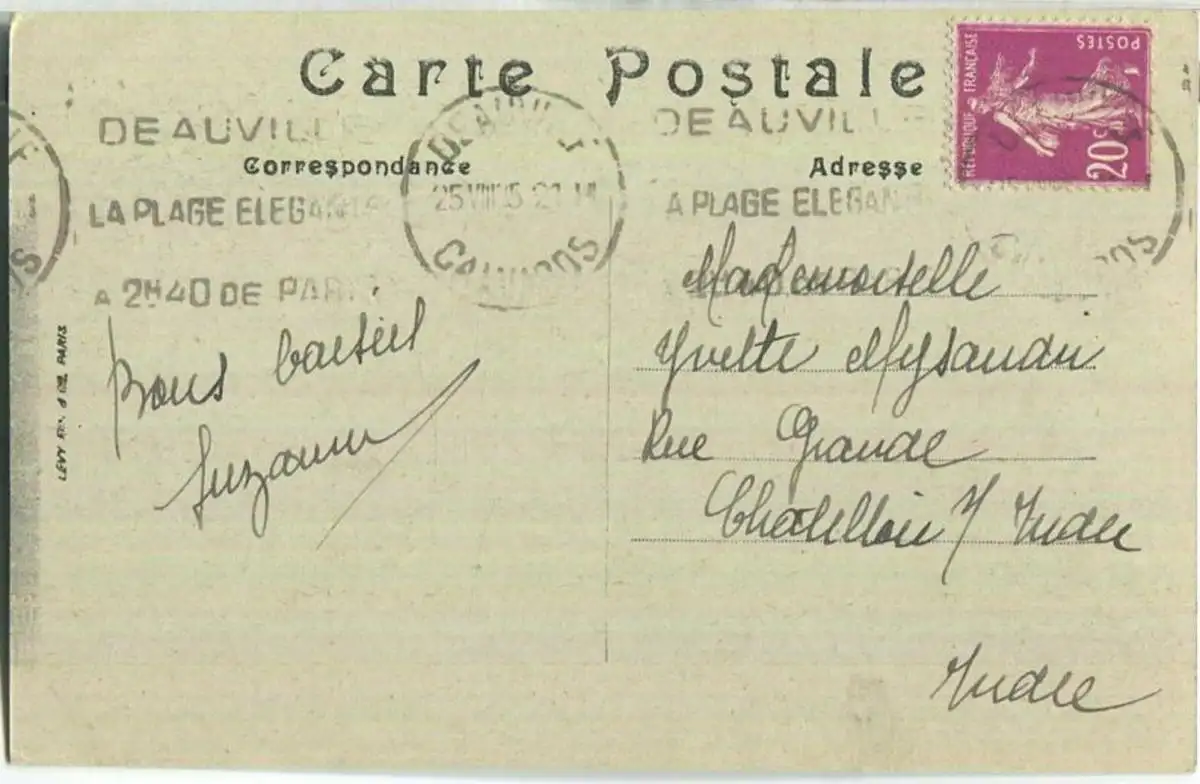 Carte Postale
RÉPUBLIQUE FRANÇAISE
POSTES
20c
DEAUVILLE
DEAUVILLE
DEAUVILLE
Correspondance
Adresse
25 VIII
LA PLAGE ELEGANTE
LA PLAGE ELEGANTE
CALVADOS
A 2H40 DE PARIS
Mademoiselle
Yvette
Rue Grande
Chatillon s/ Indre
Indre
Bons baisers
Suzanne
PARIS